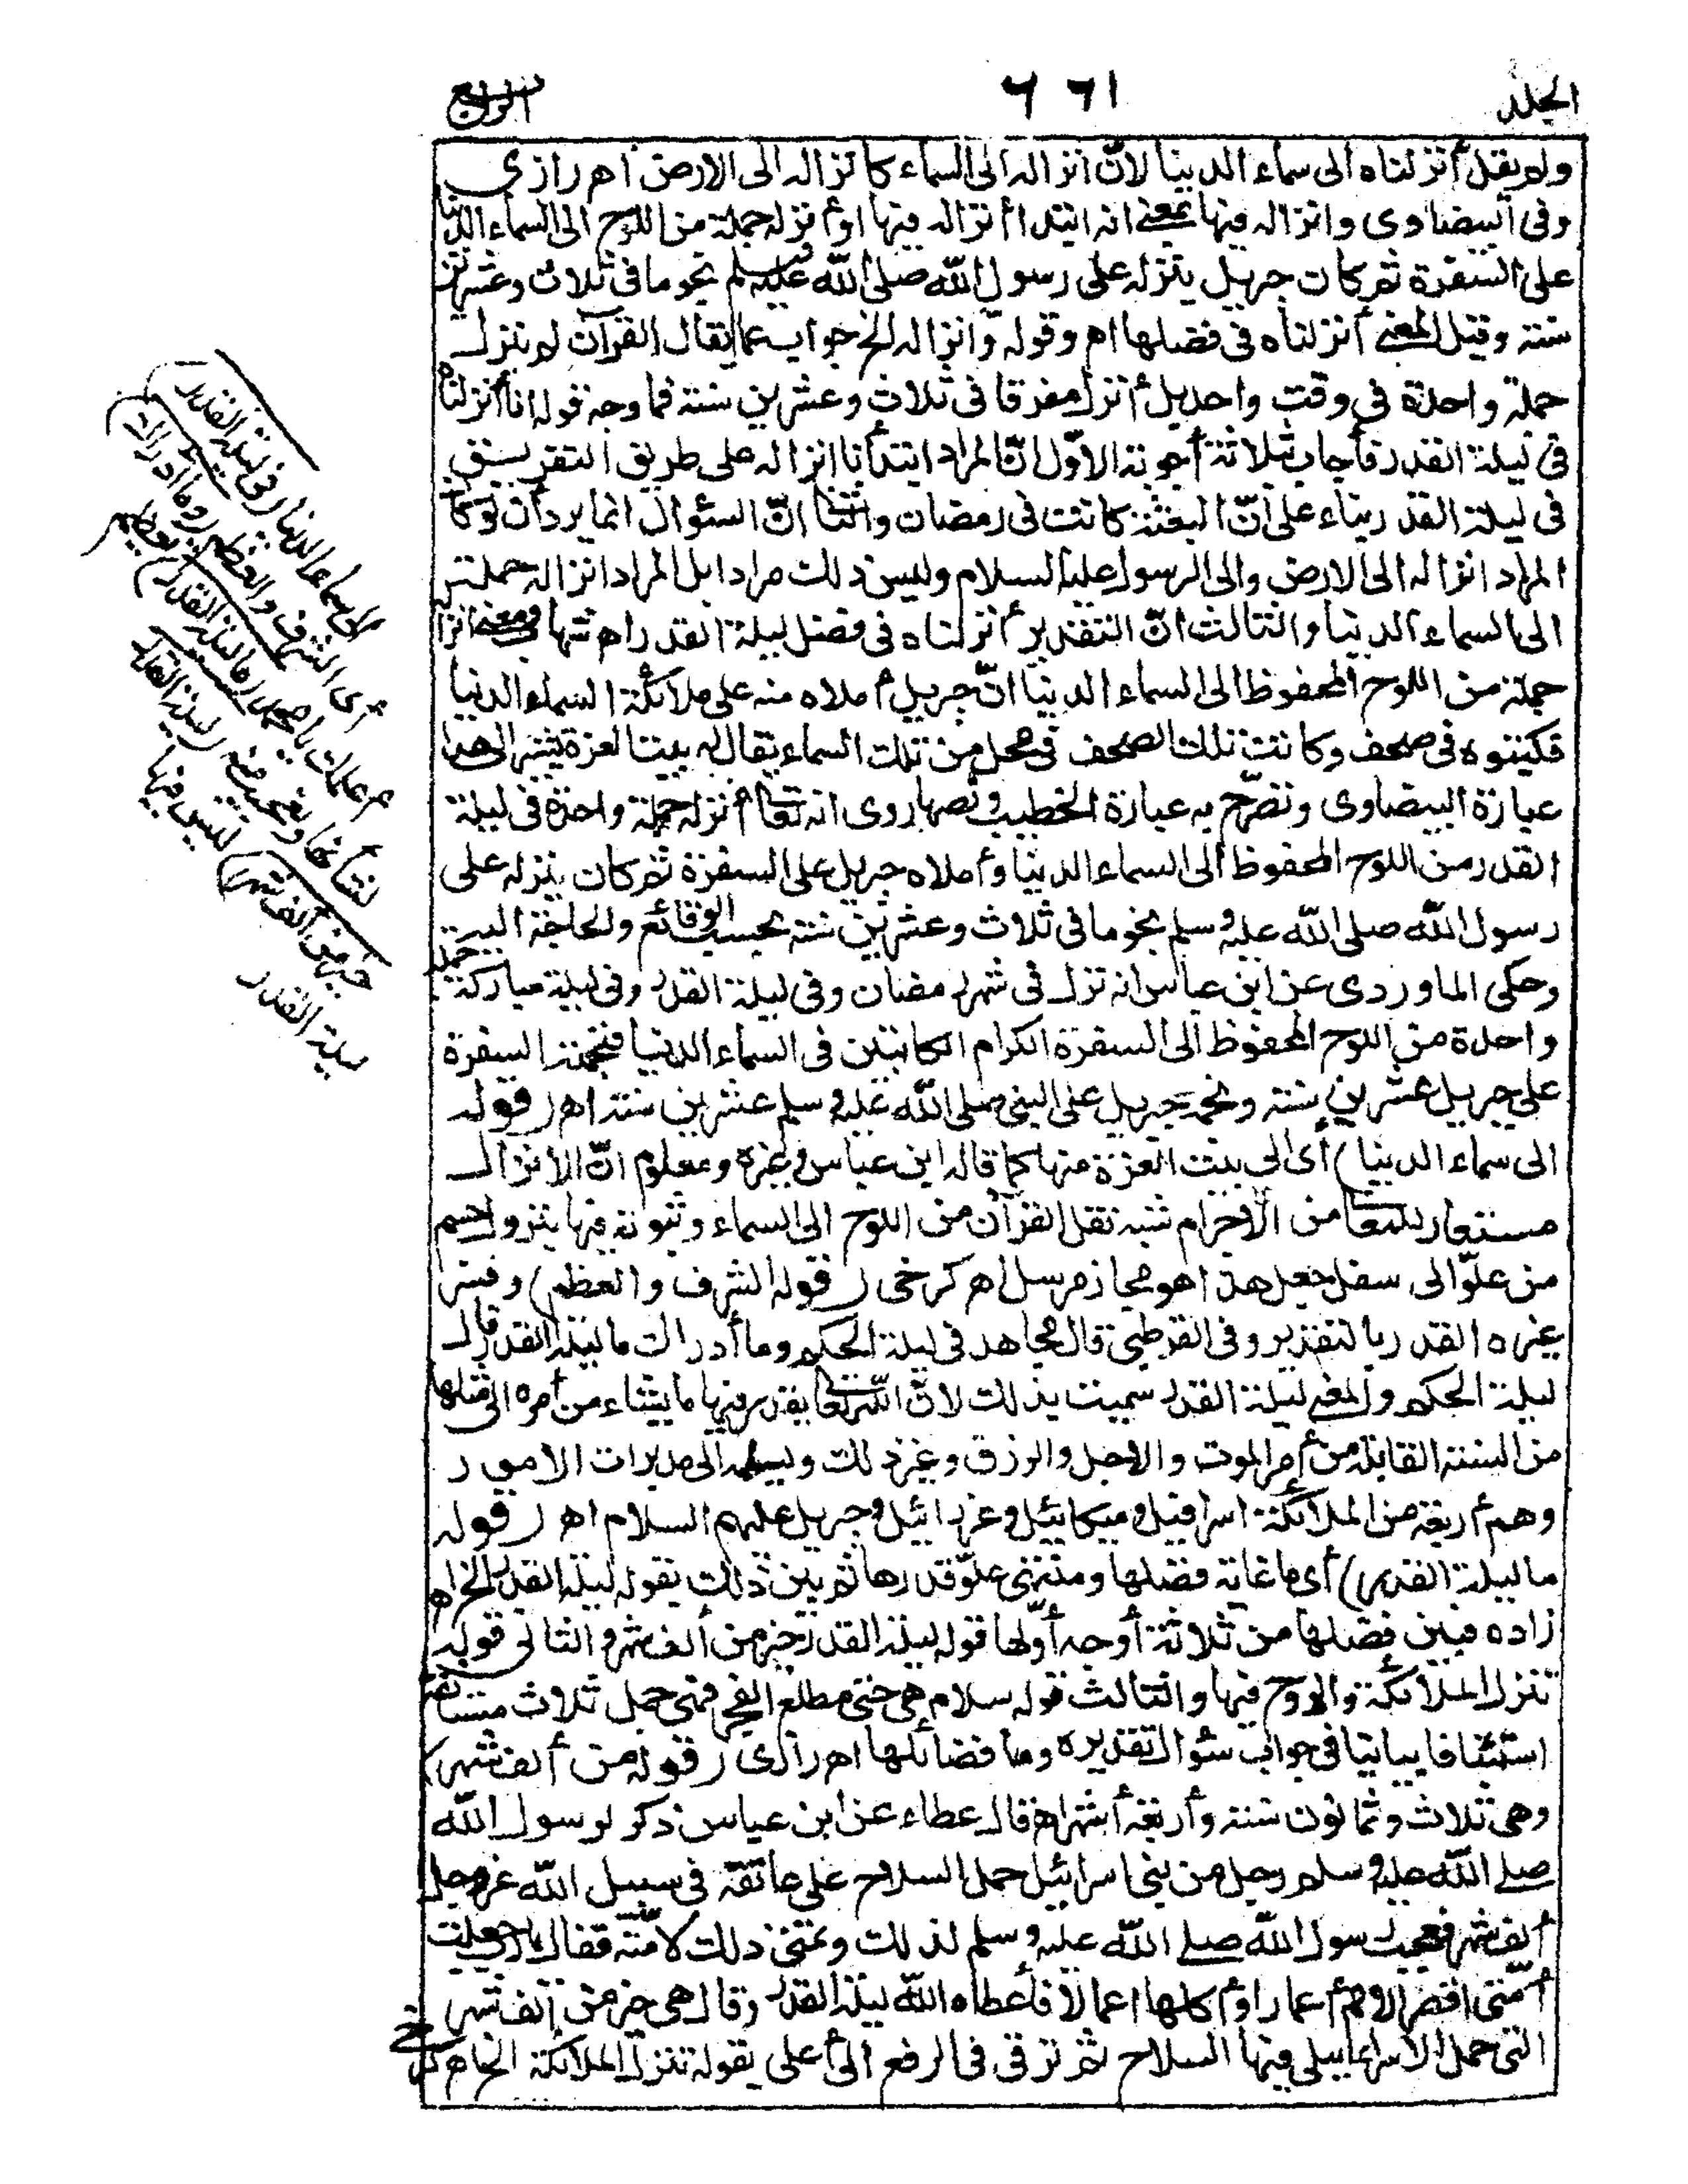 الجلد
٦٦١
الرابع
ولم يقل أنزلناه الى سماء الدنيا لانّ انزاله الى السماء كانزاله الى الارض اه رازى
وفى البيضاوى وانزاله فيها بمعنى انه ابتدأ انزاله فيها او أنزله جملة من اللوح الى السماء الدنيا
على السفرة ثم كان جبريل ينزله على رسول الله صلى الله عليه وسلم نجوما فى ثلاث وعشرين
سنة وقيل المعنى أنزلناه فى فضلها اه وقوله وانزاله الخ جواب عما يقال القرآن لم ينزل
جملة واحدة فى وقت واحد بل أنزل مفرقا فى ثلاث وعشرين سنة فما وجه قوله انا أنزلناه
فى ليلة القدر فأجاب بثلاثة أجوبة الاوّل انّ المراد ابتدأنا انزاله على طريق التفريق
فى ليلة القدر بناء على انّ البعثة كانت فى رمضان والثانى انّ السئوال انما يرد أن لو كان
المراد انزاله الى الارض والى الرسول عليه السلام وليس ذلك مرادا بل المراد انزاله جملة
الى السماء الدنيا والثالث انّ التقدير أنزلناه فى فضل ليلة القدر اه شهاب ومعنى انزاله
جملة من اللوح المحفوظ الى السماء الدنيا انّ جبريل أملاه منه على ملائكة السماء الدنيا
فكتبوه فى صحف وكانت تلك الصحف فى محل من تلك السماء يقال له بيت العزة يشير الى هذا
عبارة البيضاوى وتصرّح به عبارة الخطيب ونصها روى انه تعالى أنزله جملة واحدة فى ليلة
القدر من اللوح المحفوظ الى السماء الدنيا وأملاه جبريل على السفرة ثم كان ينزله على
رسول الله صلى الله عليه وسلم نجوما فى ثلاث وعشرين سنة بحسب الوقائع والحاجة اليه
وحكى الماوردى عن ابن عباس انه نزل فى شهر رمضان وفى ليلة القدر وفى ليلة مباركة جملة
واحدة من اللوح المحفوظ الى السفرة الكرام الكاتبين فى السماء الدنيا فنجمته السفرة
على جبريل عشرين سنة ونجمه جبريل على النبى صلى الله عليه وسلم عشرين سنة اه (قوله
الى سماء الدنيا) أى الى بيت العزة منها كما قاله ابن عباس وغيره ومعلوم انّ الانزال
مستعار للمعانى من الاجرام شبه نقل القرآن من اللوح الى السماء وثبوته فيها بنزول جسم
من علوّ الى سفل جعل هذا هو مجاز مرسل اه كرخى (قوله الشرف والعظم) وفسر
غيره القدر بالتقدير وفى القرطبى قال مجاهد فى ليلة الحكم وما أدراك ما ليلة القدر قال
ليلة الحكم والمعنى ليلة القدر سميت بذلك لانّ الله تعالى يقدر فيها ما يشاء من أمره الى مثلها
من السنة القابلة من أمر الموت والاجل والرزق وغير ذلك ويسلمه الى مدبرات الامور
وهم أربعة من الملائكة اسرافيل وميكائيل وعزرائيل وجبريل عليهم السلام اه (قوله
ما ليلة القدر) أى ما غاية فضلها ومنتهى علوّ قدرها ثم بين ذلك بقوله ليلة القدر الخ اه
زاده فبين فضلها من ثلاثة أوجه أوّلها قوله ليلة القدر خير من ألف شهر والثانى قوله
تنزل الملائكة والروح فيها والثالث قوله سلام هى حتى مطلع الفجر فهى جمل ثلاث مستأنفة
استئنافا بيانيا فى جواب سئوال تقديره وما فضائلها اه رازى (قوله من ألف شهر)
وهى ثلاث وثمانون سنة وأربعة أشهر اه قال عطاء عن ابن عباس ذكر لرسول الله
صلى الله عليه وسلم رجل من بنى اسرائيل حمل السلاح على عاتقه فى سبيل الله عز وجل
ألف شهر فعجب رسول الله صلى الله عليه وسلم لذلك وتمنى ذلك لأمّته فقال يا رب جعلت
أمّتى أقصر الامم أعمارا وأقلها اعمالا فأعطاه الله ليلة القدر وقال هى خير من ألف شهر
التى حمل الاسرائيلى فيها السلاح ثم ترقى فى الرفع الى أعلى بقوله تنزل الملائكة الخ اه كرخى
الى سماء الدنيا (فى ليلة القدر)
أى الشرف والعظم (وما أدراك)
أعلمك يا محمد (ما ليلة القدر) تعظيم
لشأنها وتعجيب منه (ليلة القدر
خير من ألف شهر) ليس فيها
ليلة القدر